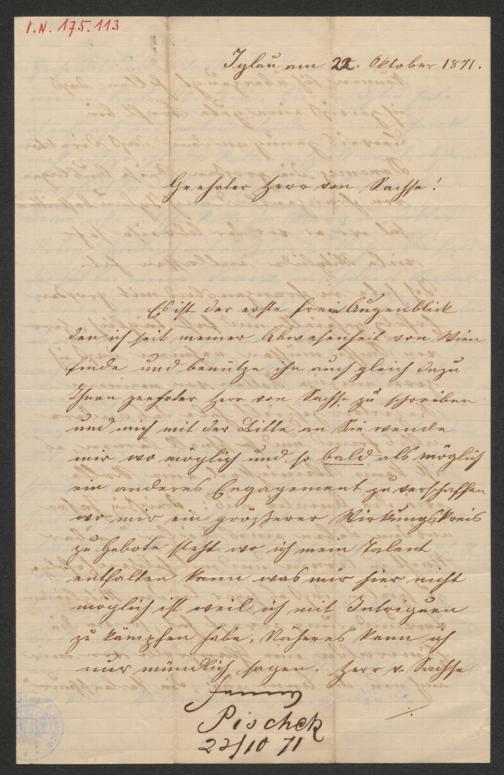 I.N. 175.113
Iglau am 22. Oktober 1871.
Geehrter Herr von Sachse!
Es ist der erste freie Augenblick
den ich seit meiner Abwesenheit von Wien
finde und benütze ihn auch gleich dazu
Ihnen geehrter Herr von Sachse zu schreiben
und mich mit der Bitte an Sie wende
mir wo möglich und so bald als möglich
ein anderes Engagement zu verschaffen
wo mir ein größerer Wirkungskreis
zu Gebote steht wo ich mein Talent
entfalten kann was mir hier nicht
möglich ist weil ich mit Intriguen
zu kämpfen habe, Näheres kann ich
nur mündlich sagen. Herr v. Sachse
Fanny
Pischek
22/10 71